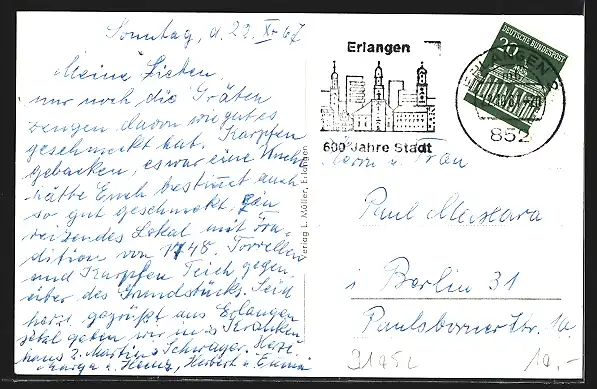 Sonntag, d. 22. X. 67
Meine Lieben,
nur noch die Gräten
zeugen davon wie gut es
geschmeckt hat. Karpfen
gebacken, es war eine Wucht
hätte Euch bestimt auch
so gut geschmekt. Ein
reizendes Lokal mit Tra-
dition von 1748. Forellen
und Karpfen Teich gegen-
über des Grundstücks. Seid
herzl. gegrüßt aus Erlangen
gehen wir ins Kranken
haus z. Martins Schwager. Herzl.
Marga u. Heinz, Herbert u. Emmi
Verlag L. Müller, Erlangen
Erlangen
600 Jahre Stadt
DEUTSCHE BUNDESPOST
20
ERLANGEN
852
Herrn u. Frau
Paul
i Berlin 31
Paulsborner Str. 10
10,-